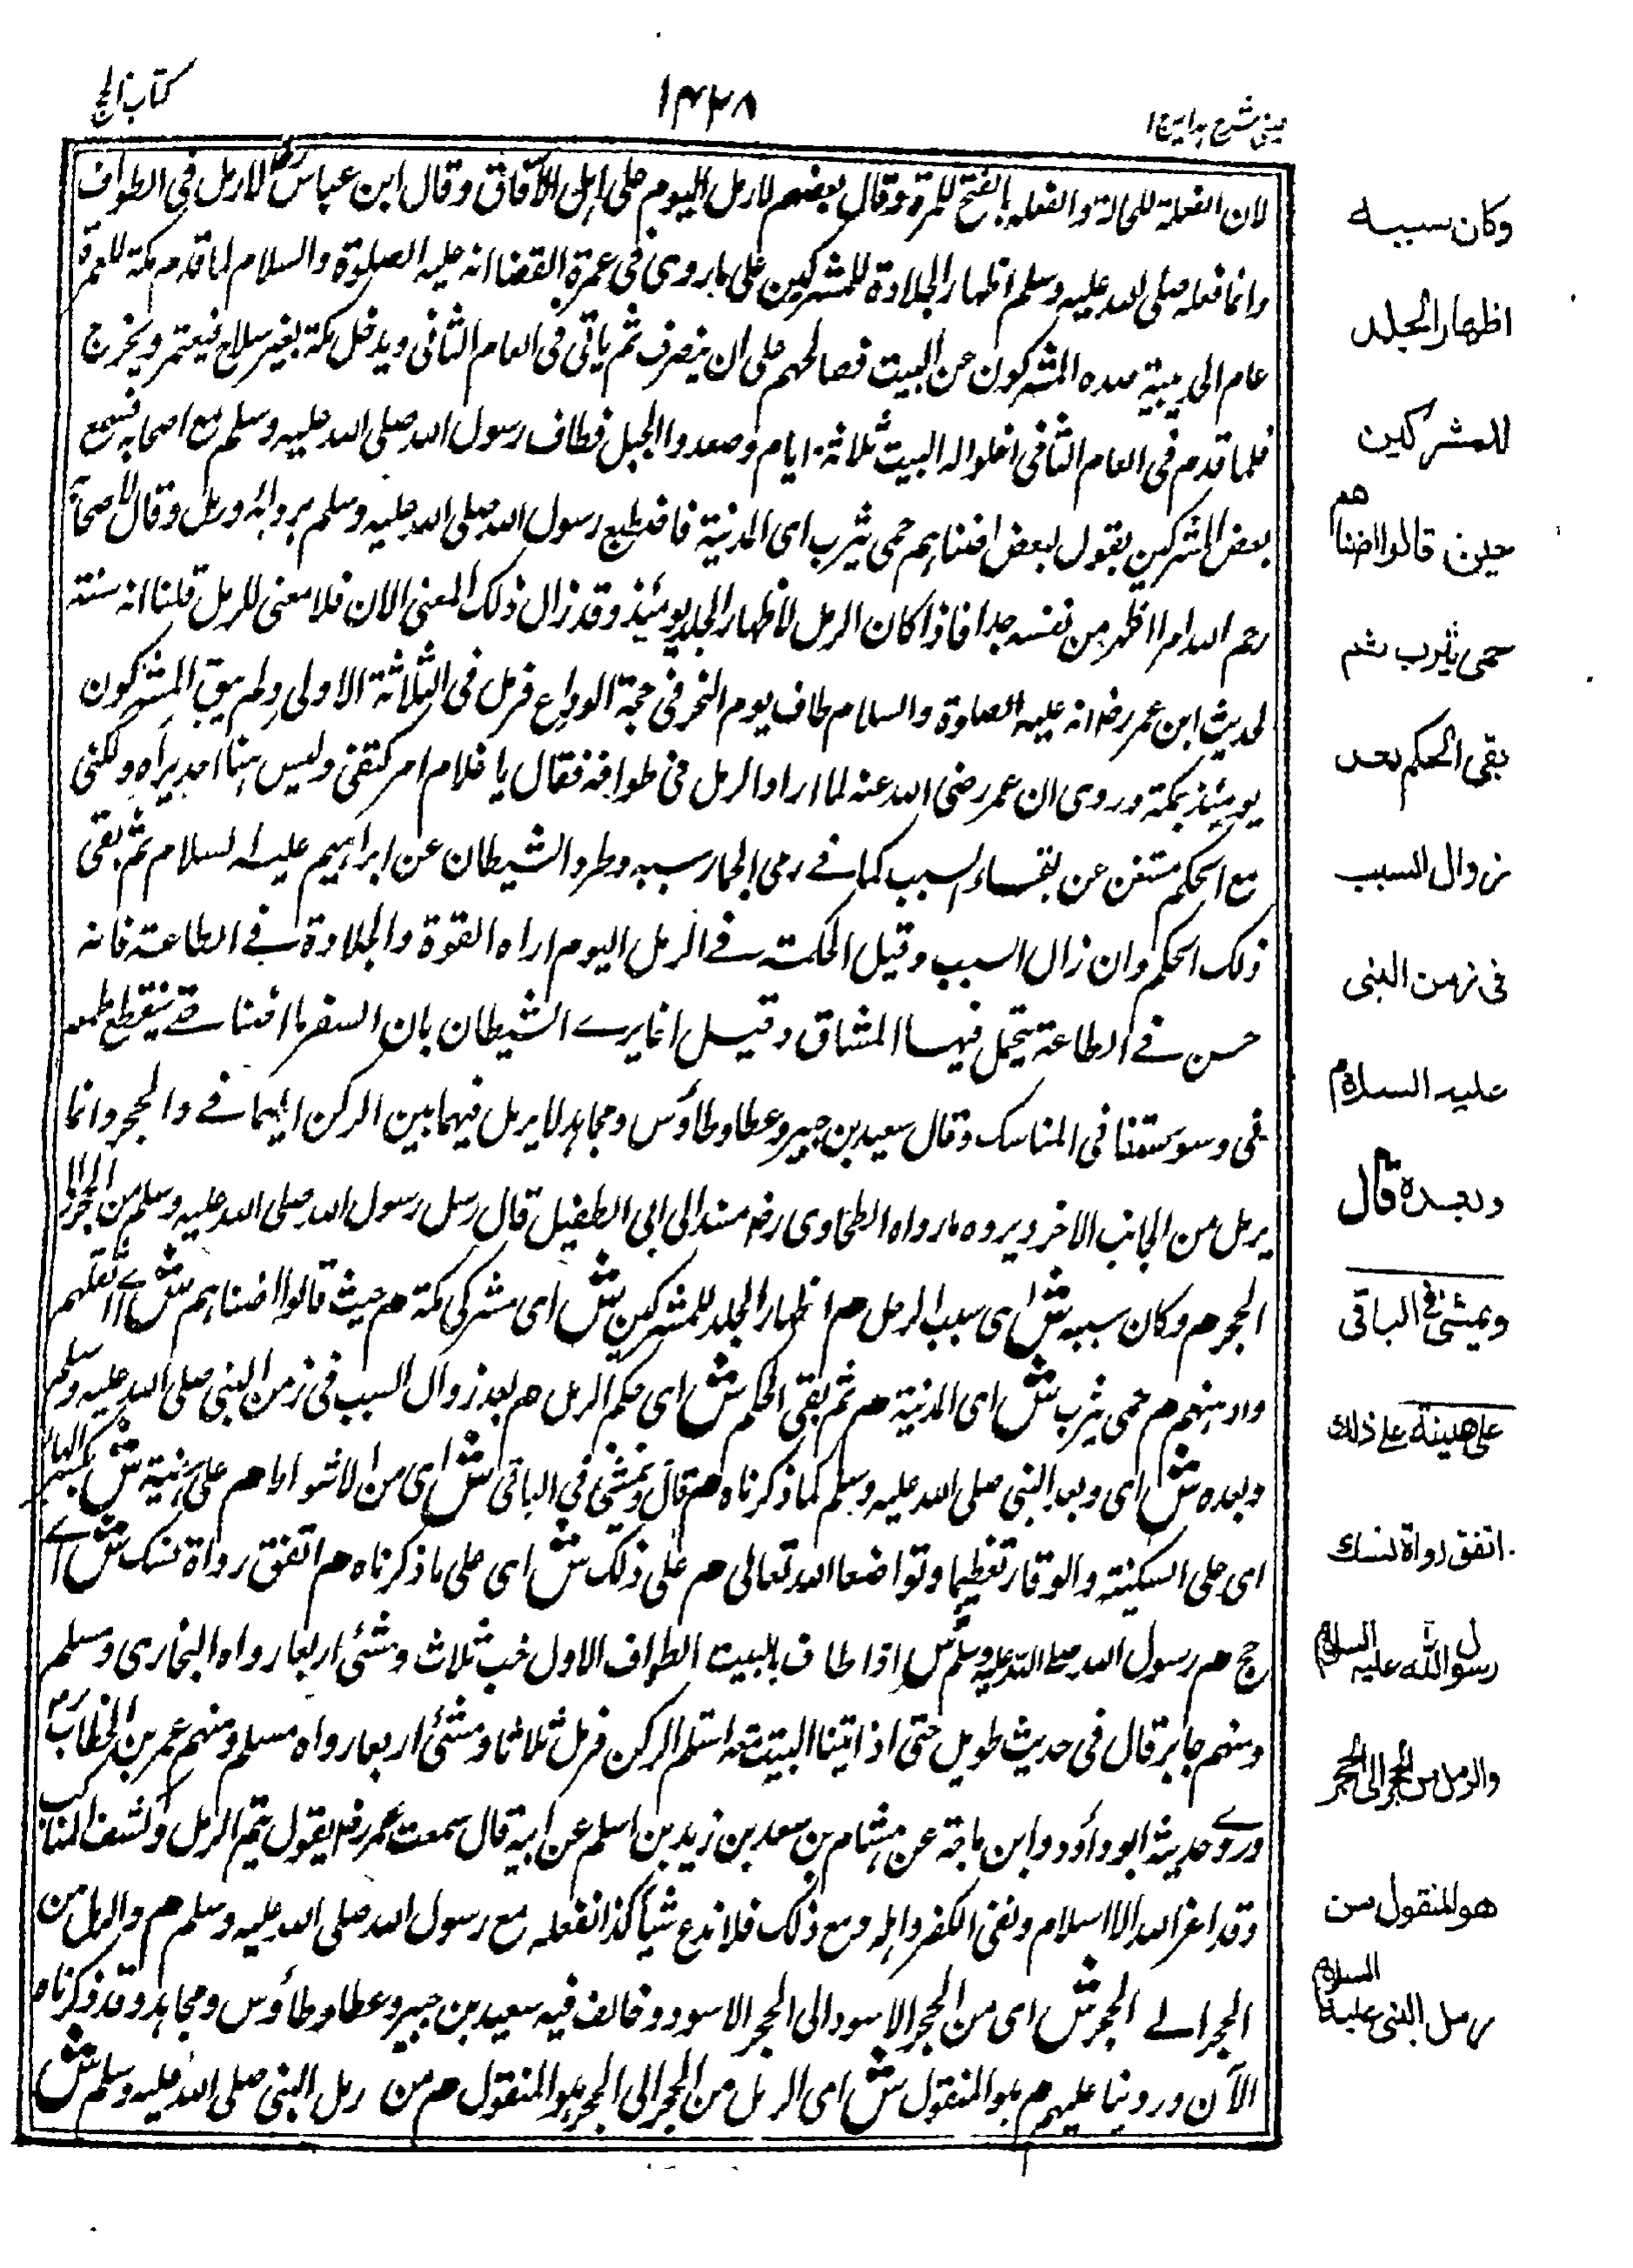 عینی شرح ہدایہ ج١
١٤٣٨
کتاب الحج
لان الفعلة للحالة والفعلة بالفتح للمرة وقال بعضهم لا رمل الیوم علی اہل الآفاق وقال ابن عباس رض لا رمل فی الطواف
وانما فعله صلی الله علیه وسلم اظهار الجلادة للمشرکین علی ما روی فی عمرة القضا انه علیه الصلوة والسلام لما قدم مکة للعمرة
عام الحدیبیة صده المشرکون عن البیت فصالحهم علی ان ینصرف ثم یاتی فی العام الثانی ویدخل مکة بغیر سلاح فیعتمر ویخرج
فلما قدم فی العام الثانی اخلوا له البیت ثلاثة ایام وصعدوا الجبل فطاف رسول الله صلی الله علیه وسلم مع اصحابه فسمع
بعض المشرکین یقول لبعض اضناہم حمی یثرب ای المدینة فاضطبع رسول الله صلی الله علیه وسلم بردائه ورمل وقال لاصحابه
رحم الله امرا اظهر من نفسه جلدا فاذا کان الرمل لاظهار الجلد یومئذ وقد زال ذلک المعنی الان فلا معنی للرمل قلنا انه سنة
لحدیث ابن عمر رضه انه علیه الصلوة والسلام طاف یوم النحر فی حجة الوداع فرمل فی الثلاثة الاولی ولم یبق المشرکون
یومئذ بمکة وروی ان عمر رضی الله عنه لما اراد الرمل فی طوافه فقال یا غلام امر کتفی ولیس ہنا احد یراہ ولکنی
مع الحکم مستغن عن بقاء السبب کما فے رمی الجمار سببه وطرد الشیطان عن ابراہیم علیه السلام ثم بقی
ذلک الحکم وان زال السبب وقیل الحکمة فے الرمل الیوم اراہ القوة والجلادة فے الطاعة فانه
حسن فے الطاعة یتحمل فیها المشاق وقیل انما یرے الشیطان بان السفر ما اضنا حتے ینقطع طمعه
فی وسوستنا فی المناسک وقال سعید بن جبیر وعطا وطاؤس ومجاہد لا یرمل فیما بین الرکن الیمانے والحجر وانما
یرمل من الجانب الاخر ویردہ ما رواہ الطحاوی رضه مسندا الی ابی الطفیل قال رمل رسول الله صلی الله علیه وسلم من الحجر الی
الحجر هم وکان سببه ش ای سبب الرمل هم اظهار الجلد للمشرکین ش ای مشرکی مکة هم حیث قالوا اضناہم ش اے اثقلهم
واوہنهم هم حمی یثرب ش ای المدینة هم ثم بقی الحکم ش ای حکم الرمل هم بعد زوال السبب فی زمن النبی صلی الله علیه وسلم
وبعدہ ش ای وبعد النبی صلی الله علیه وسلم کما ذکرناہ هم قال ویمشی فی الباقی ش ای من الاشواط هم علی ہینة ش بکسر الهاء
ای علی السکینة والوقار تعظیما وتواضعا الله تعالی هم علی ذلک ش ای علی ما ذکرناہ هم اتفق رواة نسک ش اے
حج هم رسول الله صلی الله علیه وسلم ش اذا طاف بالبیت الطواف الاول خب ثلاث ومشی اربعا رواہ البخاری ومسلم
ومنهم جابر قال فی حدیث طویل حتی اذا اتینا البیت معه استلم الرکن فرمل ثلاثا ومشی اربعا رواہ مسلم ومنهم عمر بن الخطاب رض
وروے حدیثه ابو داؤد وابن ماجة عن ہشام بن سعد بن زید بن اسلم عن ابیه قال سمعت عمر رضه یقول فیم الرمل وکشف المناکب
وقد اعز الله الاسلام ونفی الکفر واہله ومع ذلک فلا ندع شیأ کنا نفعله مع رسول الله صلی الله علیه وسلم هم والرمل من
الحجر الے الحجر ش ای من الحجر الاسود الی الحجر الاسود وخالف فیه سعید بن جبیر وعطا وطاؤس ومجاہد وقد ذکرناہ
الآن ورددنا علیهم هم ہو المنقول ش ای الرمل من الحجر الی الحجر ہو المنقول هم من رمل النبی صلی الله علیه وسلم ش
وکان سببه
اظهار الجلد
للمشرکین
حین قالوا اضناهم
حمی یثرب ثم
بقی الحکم بعد
زوال السبب
فی زمن النبی
علیه السلام
وبعده قال
ویمشی فی الباقی
علی هینة علی ذلك
اتفق رواة نسك
رسول الله علیه السلام
والرمل من الحجر الی الحجر
هو المنقول من
رمل النبی علیه السلام